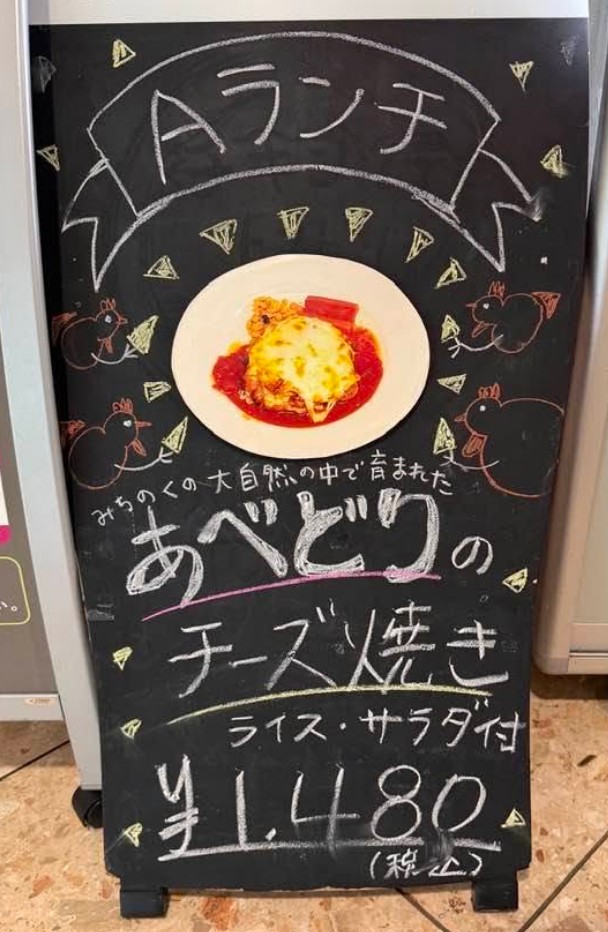 Aランチ
みちのくの大自然の中で育まれた
あべどりの
チーズ焼き
ライス・サラダ付
¥1,480
(税込)